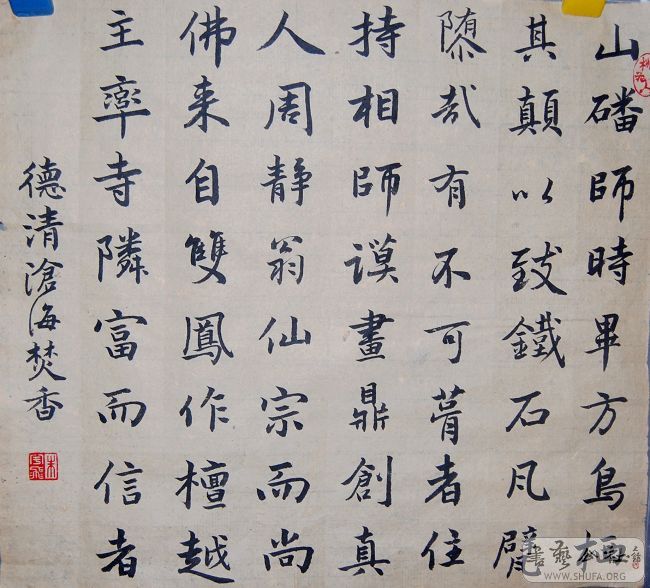 山磻師時畢方鳥
其顛以致鐵石凡
哉有不可瞢者住
持相師謨畫鼎創真
人周静翁仙宗而尚
佛来自雙鳳作檀越
主率寺隣富而信者
德清滄海焚香
WWW.SHUFA.ORG